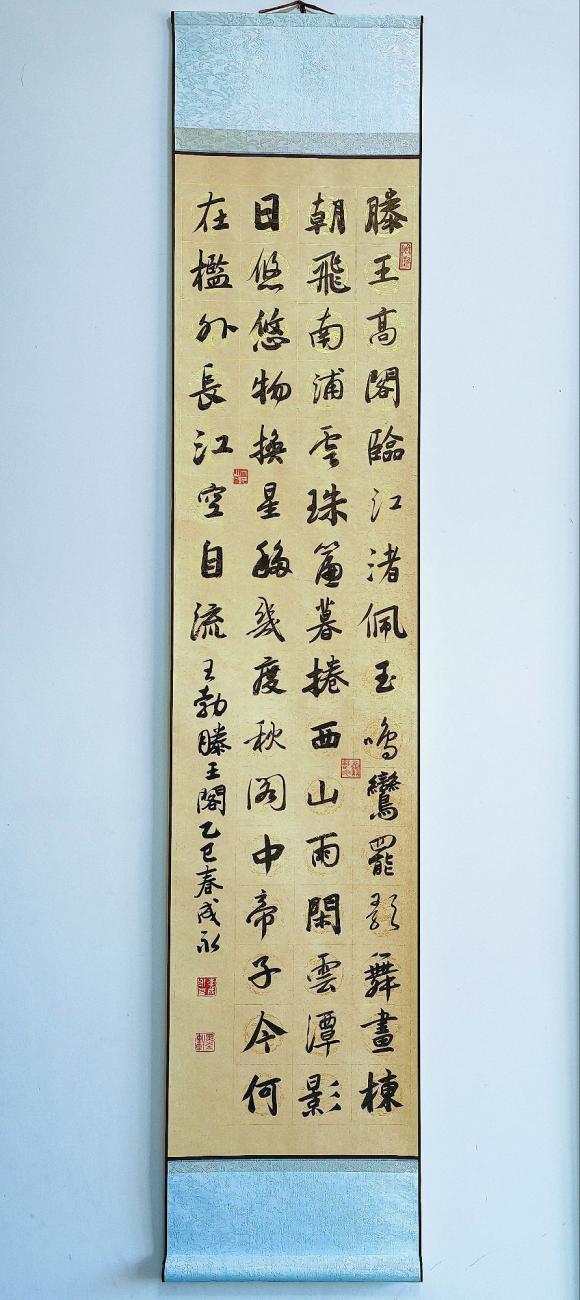 滕王高閣臨江渚佩玉鳴鸞罷歌舞畫棟
朝飛南浦雲珠簾暮捲西山雨閑雲潭影
日悠悠物換星移幾度秋阁中帝子今何
在檻外長江空自流王勃滕王閣乙巳春成永